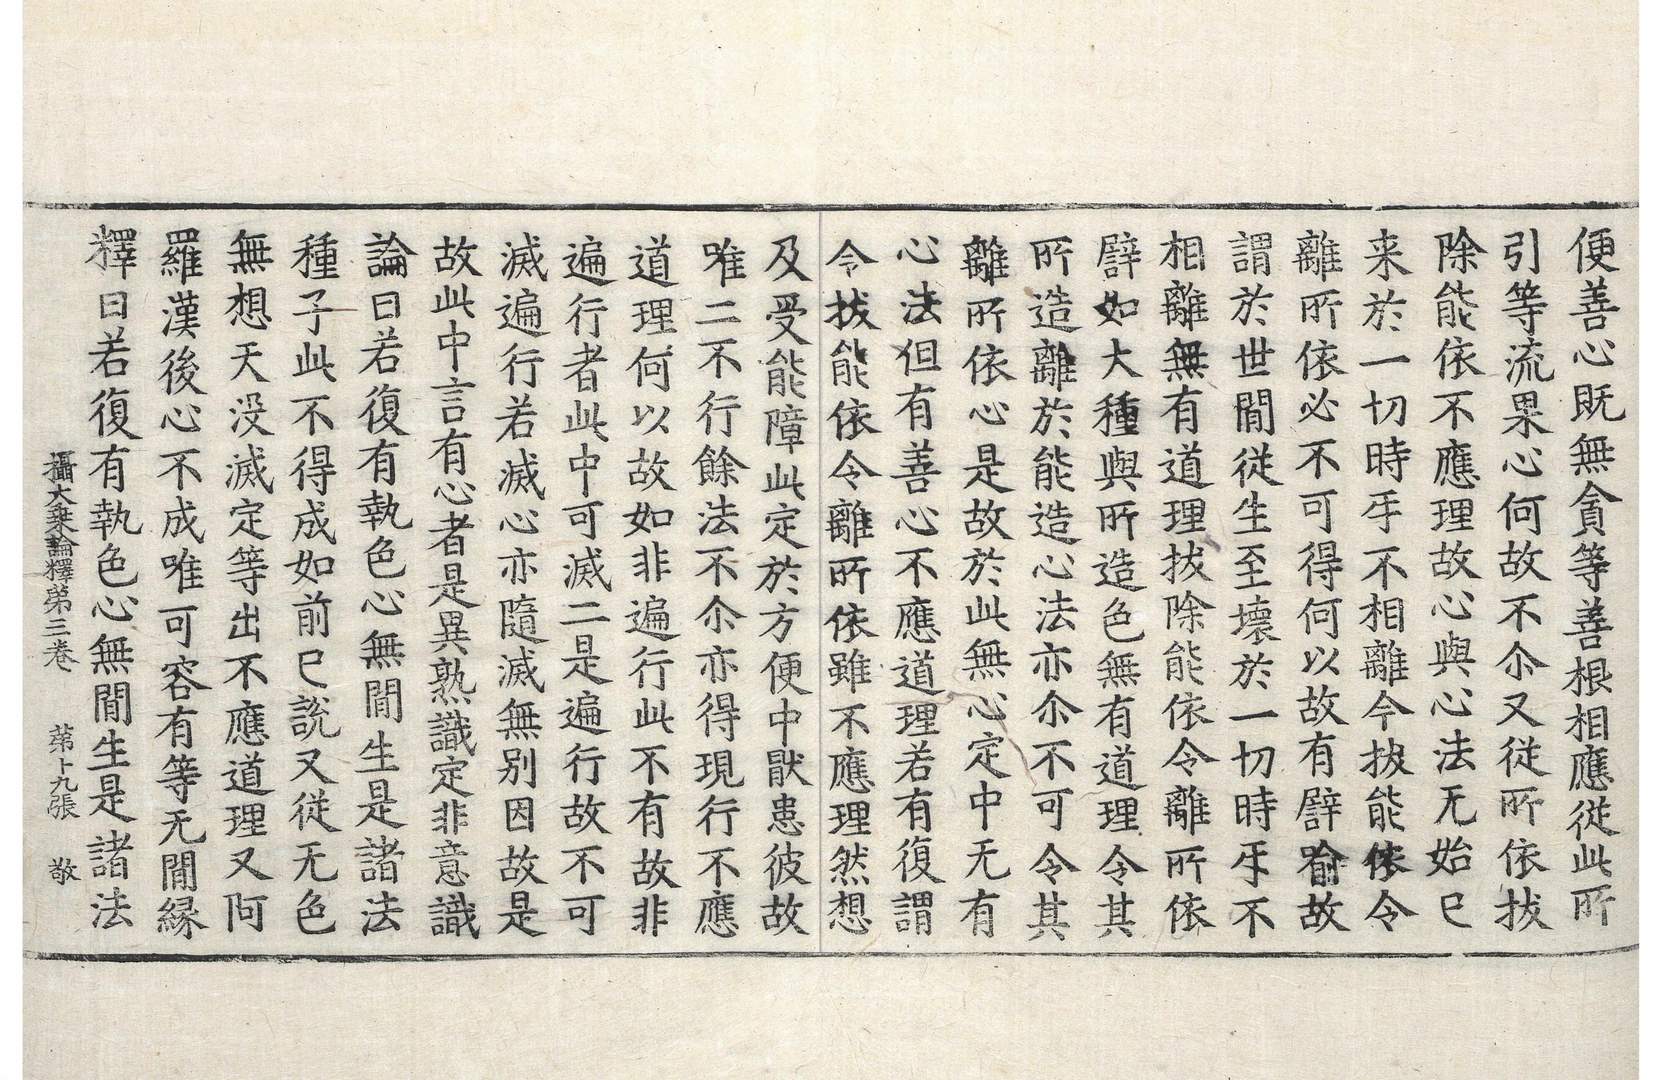 便善心既無貪等善根相應從此所
引等流果心何故不尒又從所依拔
除能依不應理故心與心法无始已
来於一切時乎不相離今拔能依令
離所依必不可得何以故有譬喻故
謂於世間從生至壞於一切時乎不
相離無有道理拔除能依令離所依
譬如大種與所造色無有道理令其
所造離於能造心法亦尒不可令其
離所依心是故於此無心定中无有
心法但有善心不應道理若有復謂
令拔能依令離所依雖不應理然想
及受能障此定於方便中猒患彼故
唯二不行餘法不尒亦得現行不應
道理何以故如非遍行此不有故非
遍行者此中可滅二是遍行故不可
滅遍行若滅心亦隨滅無別因故是
故此中言有心者是異熟識定非意識
論曰若復有執色心無間生是諸法
種子此不得成如前已說又從无色
無想天没滅定等出不應道理又阿
羅漢後心不成唯可容有等无間縁
釋曰若復有執色心無間生是諸法
攝大乗論釋第三卷　第十九張　敬